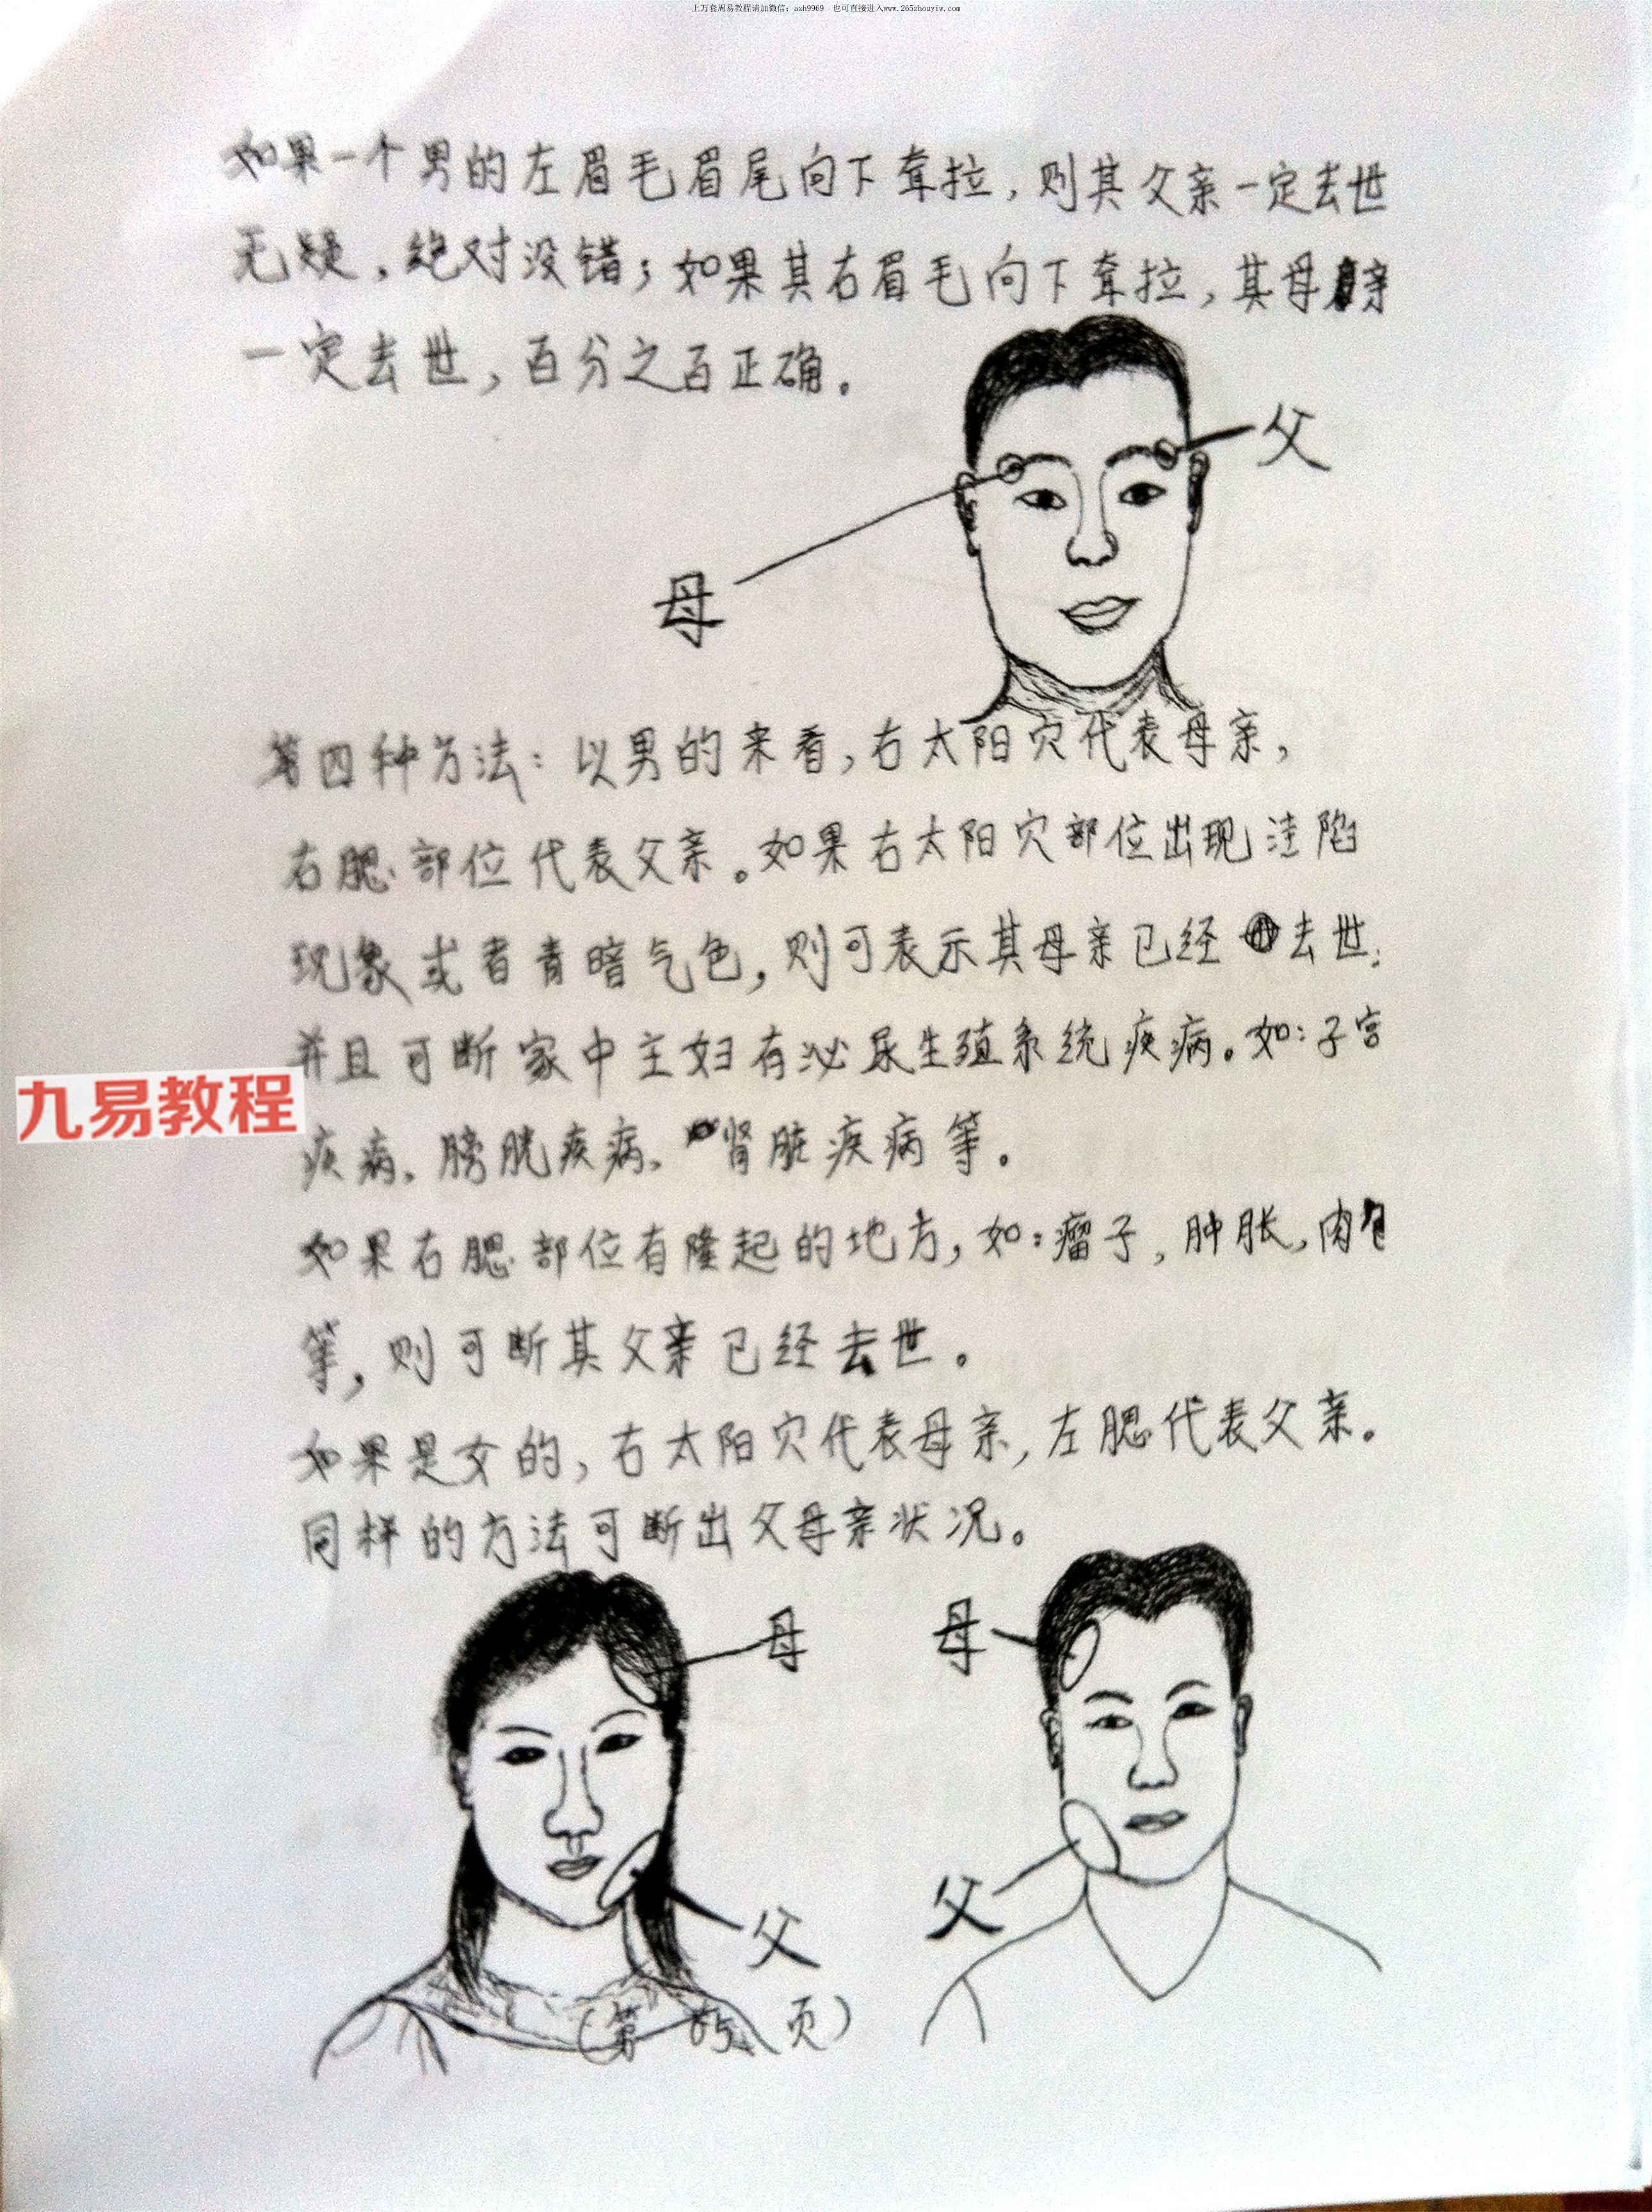 上万套周易教程请加微信：azh9969 也可直接进入www.265zhouyiw.com
如果一个男的左眉毛眉尾向下耷拉，则其父亲一定去世
无疑，绝对没错；如果其右眉毛向下耷拉，其母亲
一定去世，百分之百正确。
父
母
第四种方法：以男的来看，右太阳穴代表母亲，
右腮部位代表父亲。如果右太阳穴部位出现洼陷
现象或者青暗气色，则可表示其母亲已经去世；
并且可断家中主妇有泌尿生殖系统疾病。如：子宫
九易教程
疾病、膀胱疾病、肾脏疾病等。
如果右腮部位有隆起的地方，如：瘤子，肿胀，肉包
等，则可断其父亲已经去世。
如果是女的，右太阳穴代表母亲，左腮代表父亲。
同样的方法可断出父母亲状况。
母
母
父
父
（第 85 页）